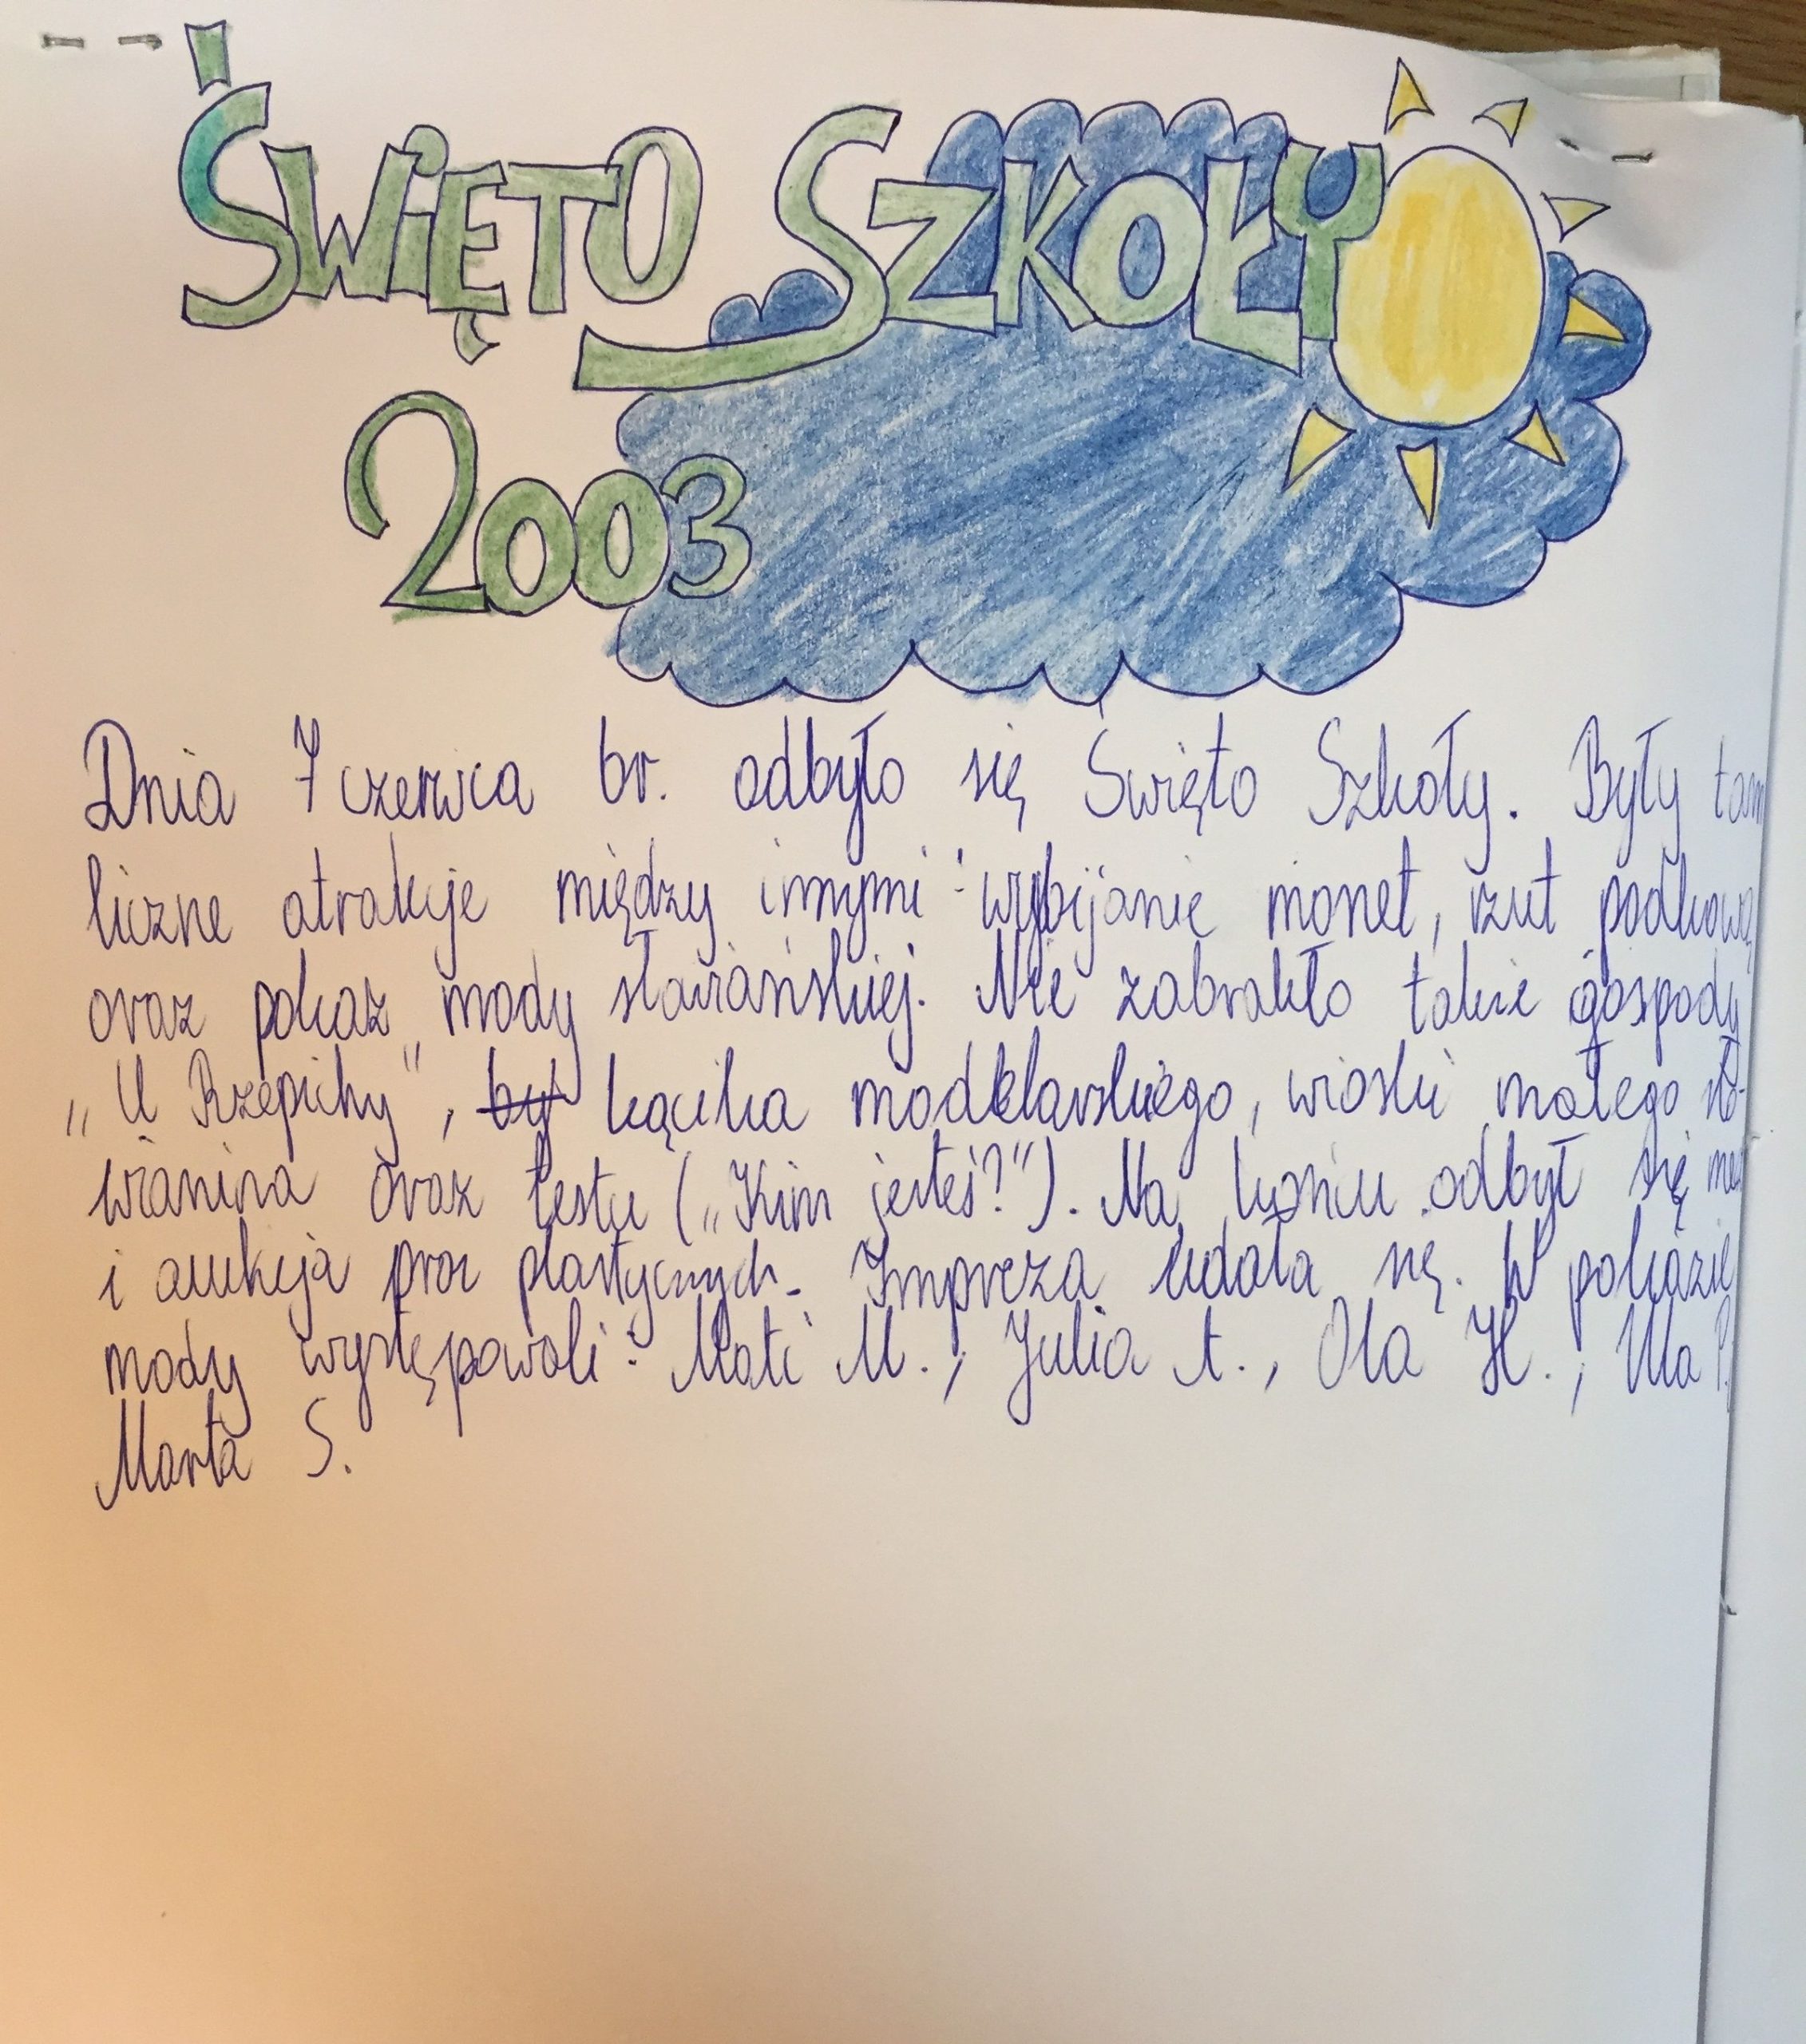 ŚWIĘTO SZKOŁY
2003
Dnia 7 czerwca br. odbyło się Święto Szkoły. Były tam
liczne atrakcje między innymi: wybijanie monet, rzut podkową
oraz pokaz mody słowiańskiej. Nie zabrakło także gospody
„U Rzepichy", był kącika modelarskiego, wioski małego sło-
wianina oraz testu („Kim jesteś?"). Na końcu odbył się
i aukcja prac plastycznych. Impreza udała się. W pokazie
mody występowali: Mati M., Julia A., Ola H., Ula P.,
Marta S.